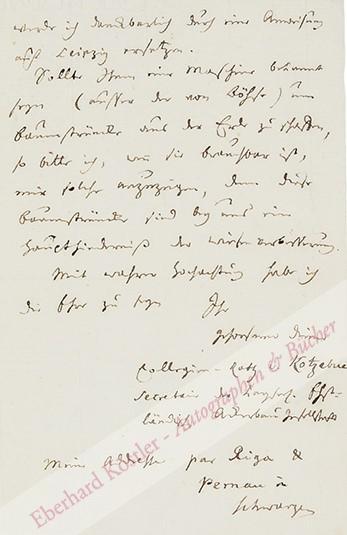 werde ich dankbarlich durch eine Anweisung
auf Leipzig ersetzen.
Sollte Ihnen eine Maschine bekannt
seyn (ausser der von Böhse) um
Baumstrünke aus der Erde zu schaffen,
so bitte ich, wenn sie brauchbar ist,
mir solche anzuzeigen, denn diese
Baumstrünke sind bey uns ein
Haupthinderniß der Wiesenverbesserung.
Mit wahrer Hochachtung habe ich
die Ehre zu seyn Ihr
gehorsamer Diener
Collegien-Rath v Kotzebue
Secretair der Kayserl. Ehst-
ländisch. Ackerbau Gesellschaft
Meine Addresse par Riga &
Pernau à
Schwarzen
Eberhard Köstler - Autographen & Bücher